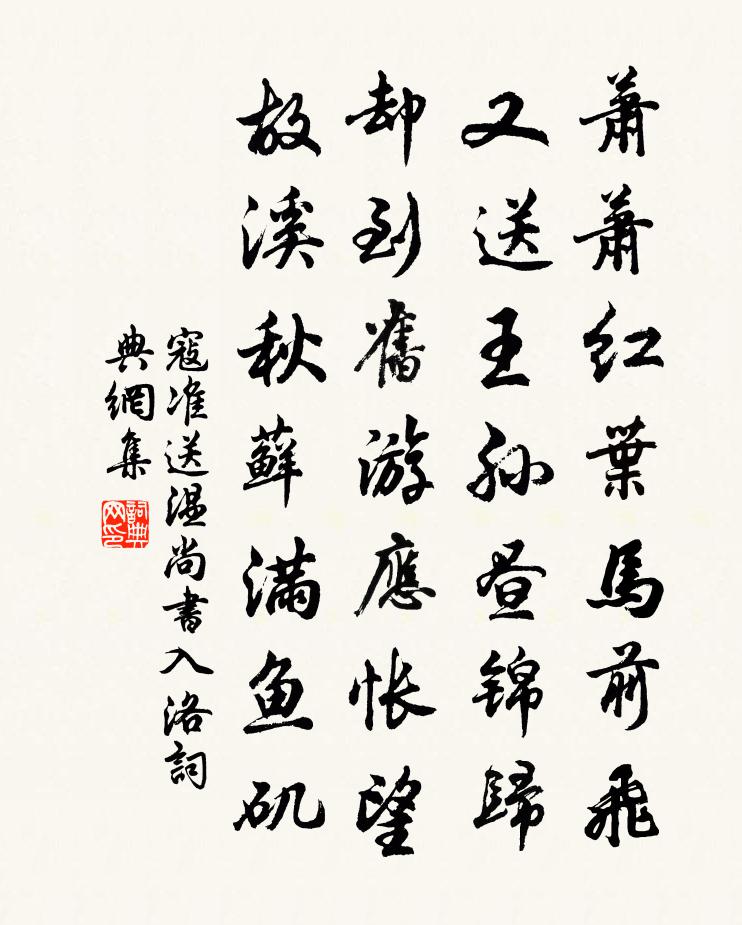 蕭蕭紅葉馬前飛
又送王孫昼錦歸
却到舊游應怅望
故溪秋蘚满鱼矶
寇准送温尚書入洛詞
典網集
詞典网印